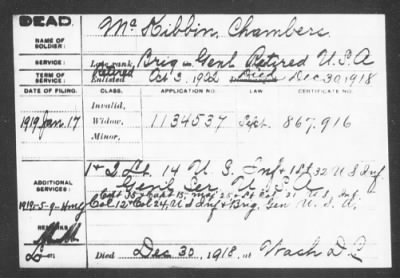 DEAD.
NAME OF SOLDIER: McKibbin, Chambers.
SERVICE: Late rank, Brig Genl Retired U.S.A
TERM OF SERVICE: Retired Enlisted Oct 3, 1902 Died Dec 30, 1918
DATE OF FILING. CLASS. APPLICATION NO. LAW. CERTIFICATE NO.
Invalid,
1919 Jan. 17 Widow, 1134537 Sept. 867.916
Minor,
ADDITIONAL SERVICES: 1st & 2 Lt. 14 U.S. Inf & 1st Lt 32 U S Inf
Genl Ser. U.S.A.
Capt 35 & Capt 15, Maj 25 & Lt Col 21 U.S. Inf
Col 12 & Col 24, U S Inf & Brig. Gen U.S.A.
REMARKS:
Died Dec 30, 1918, at Wash D C